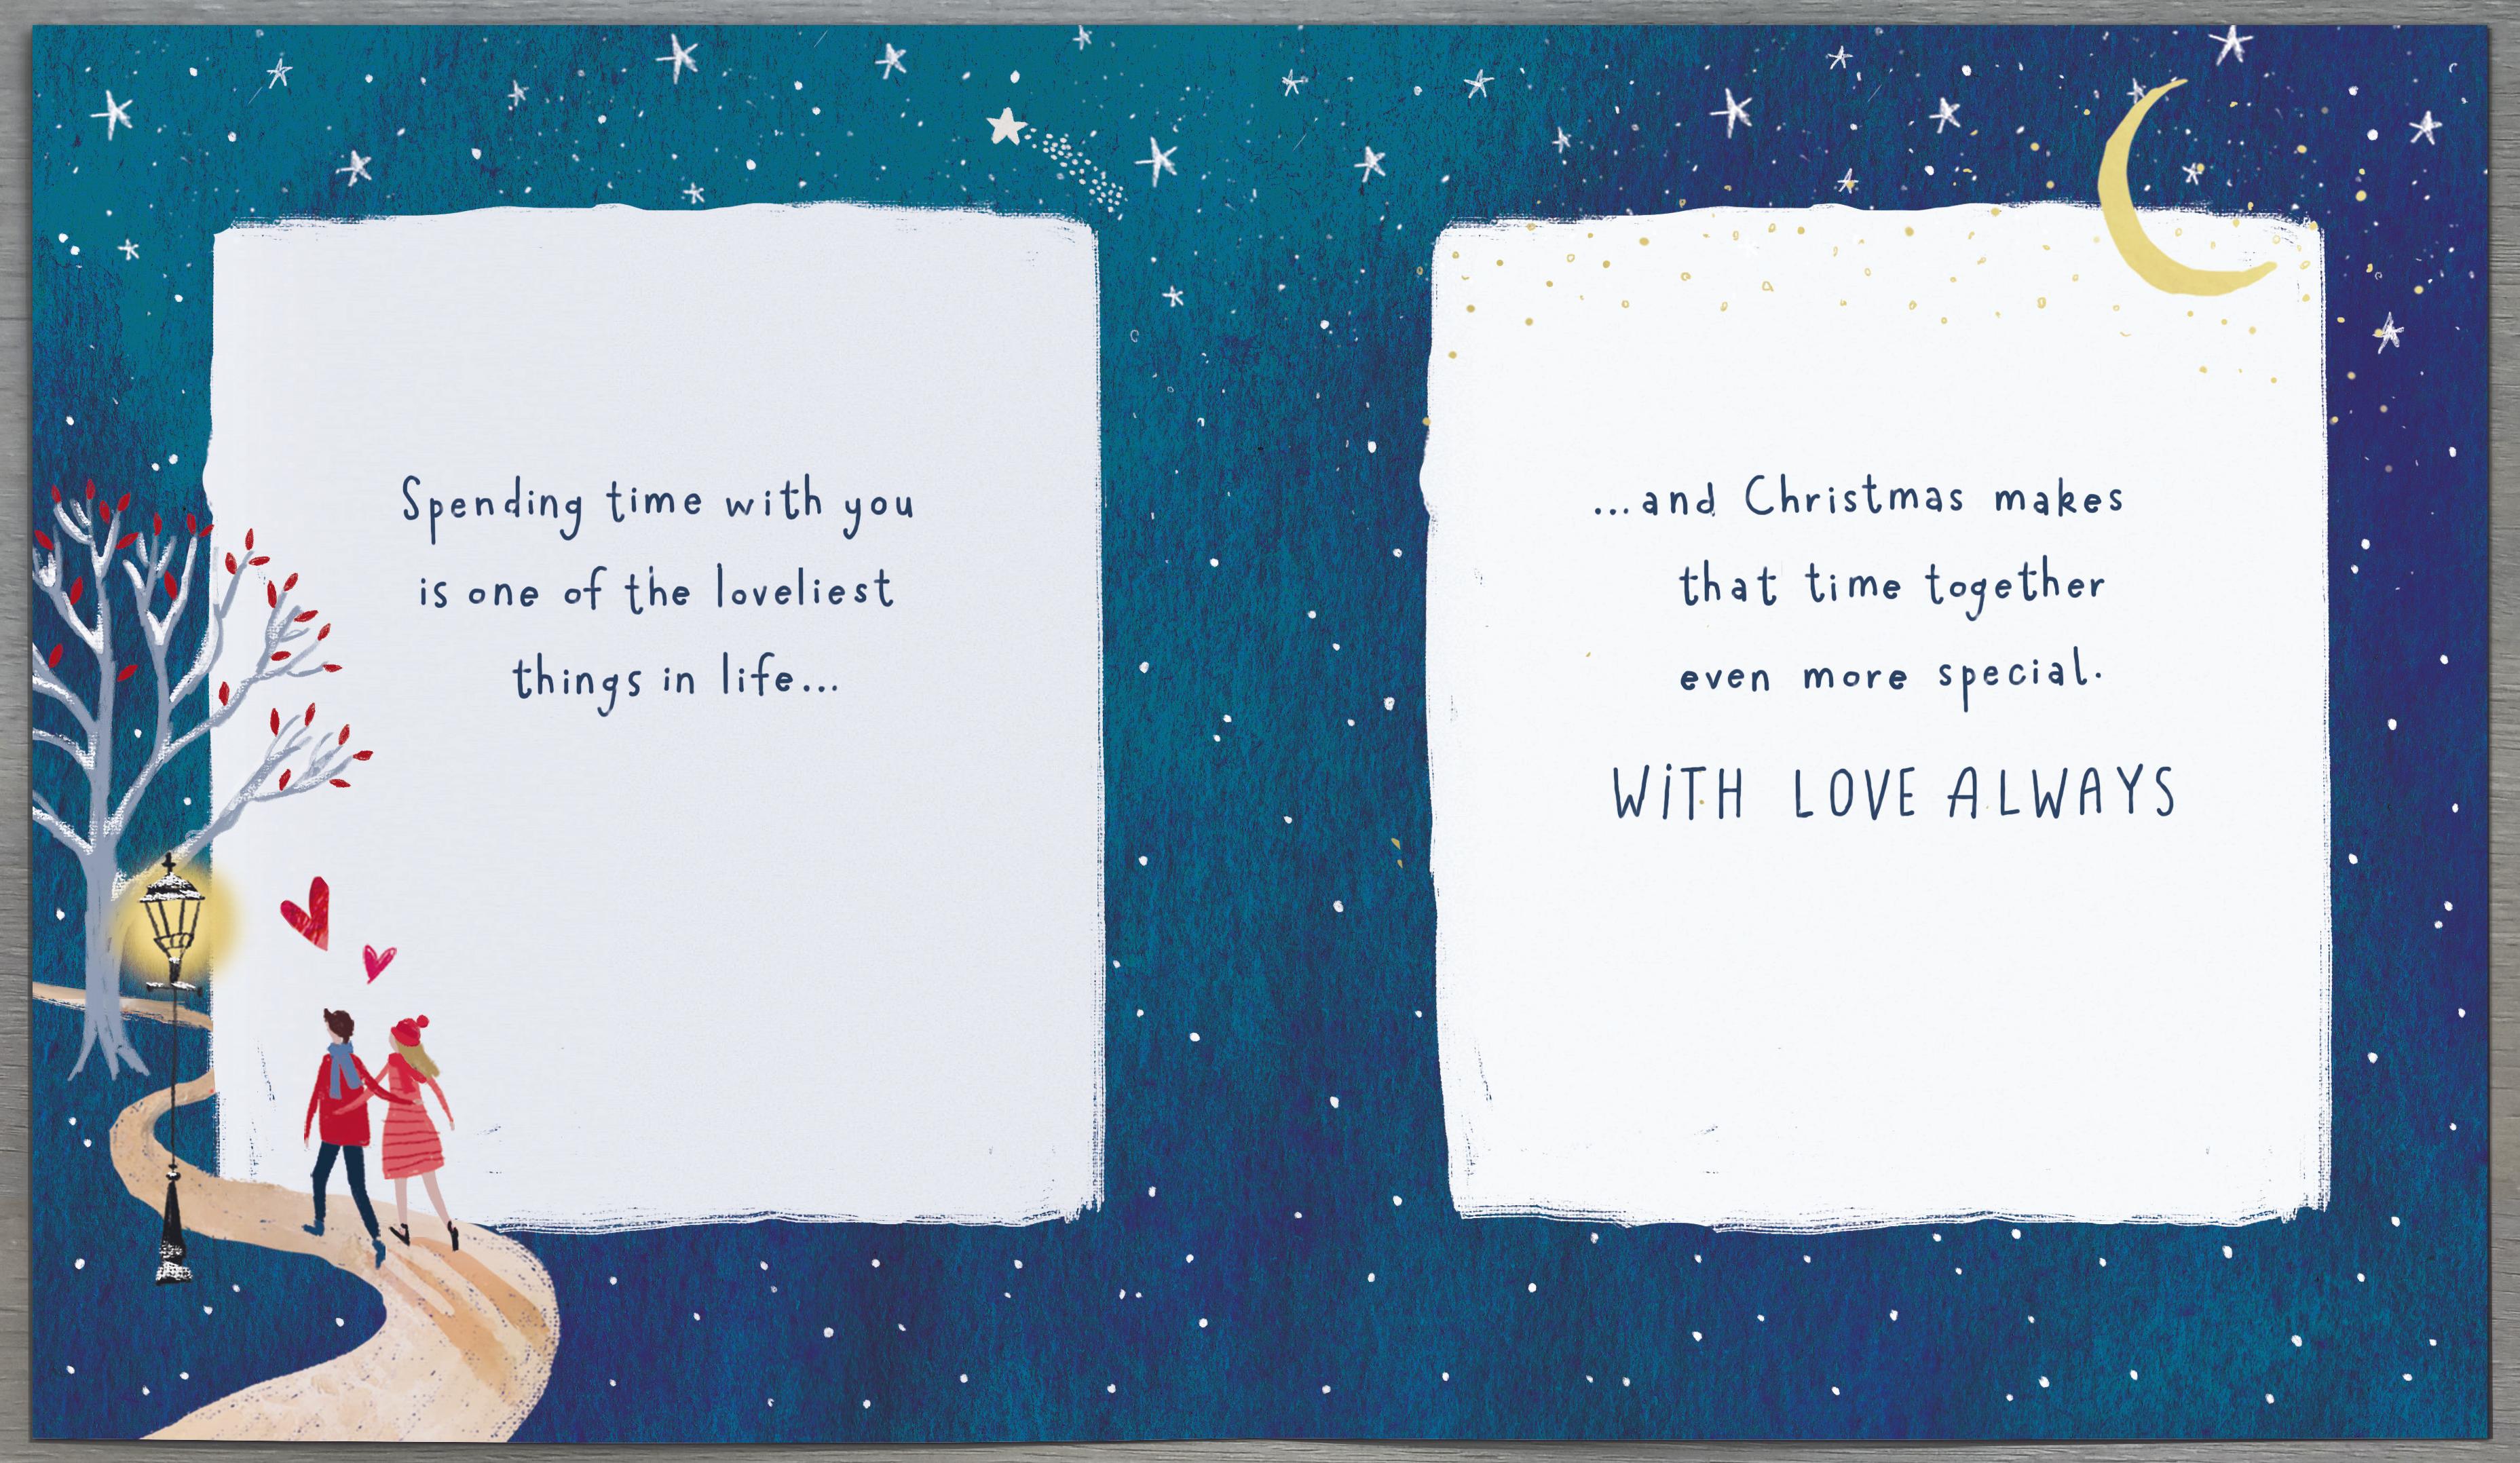 Spending time with you
is one of the loveliest
things in life...
...and Christmas makes
that time together
even more special.
WiTH LOVE ALWAYS